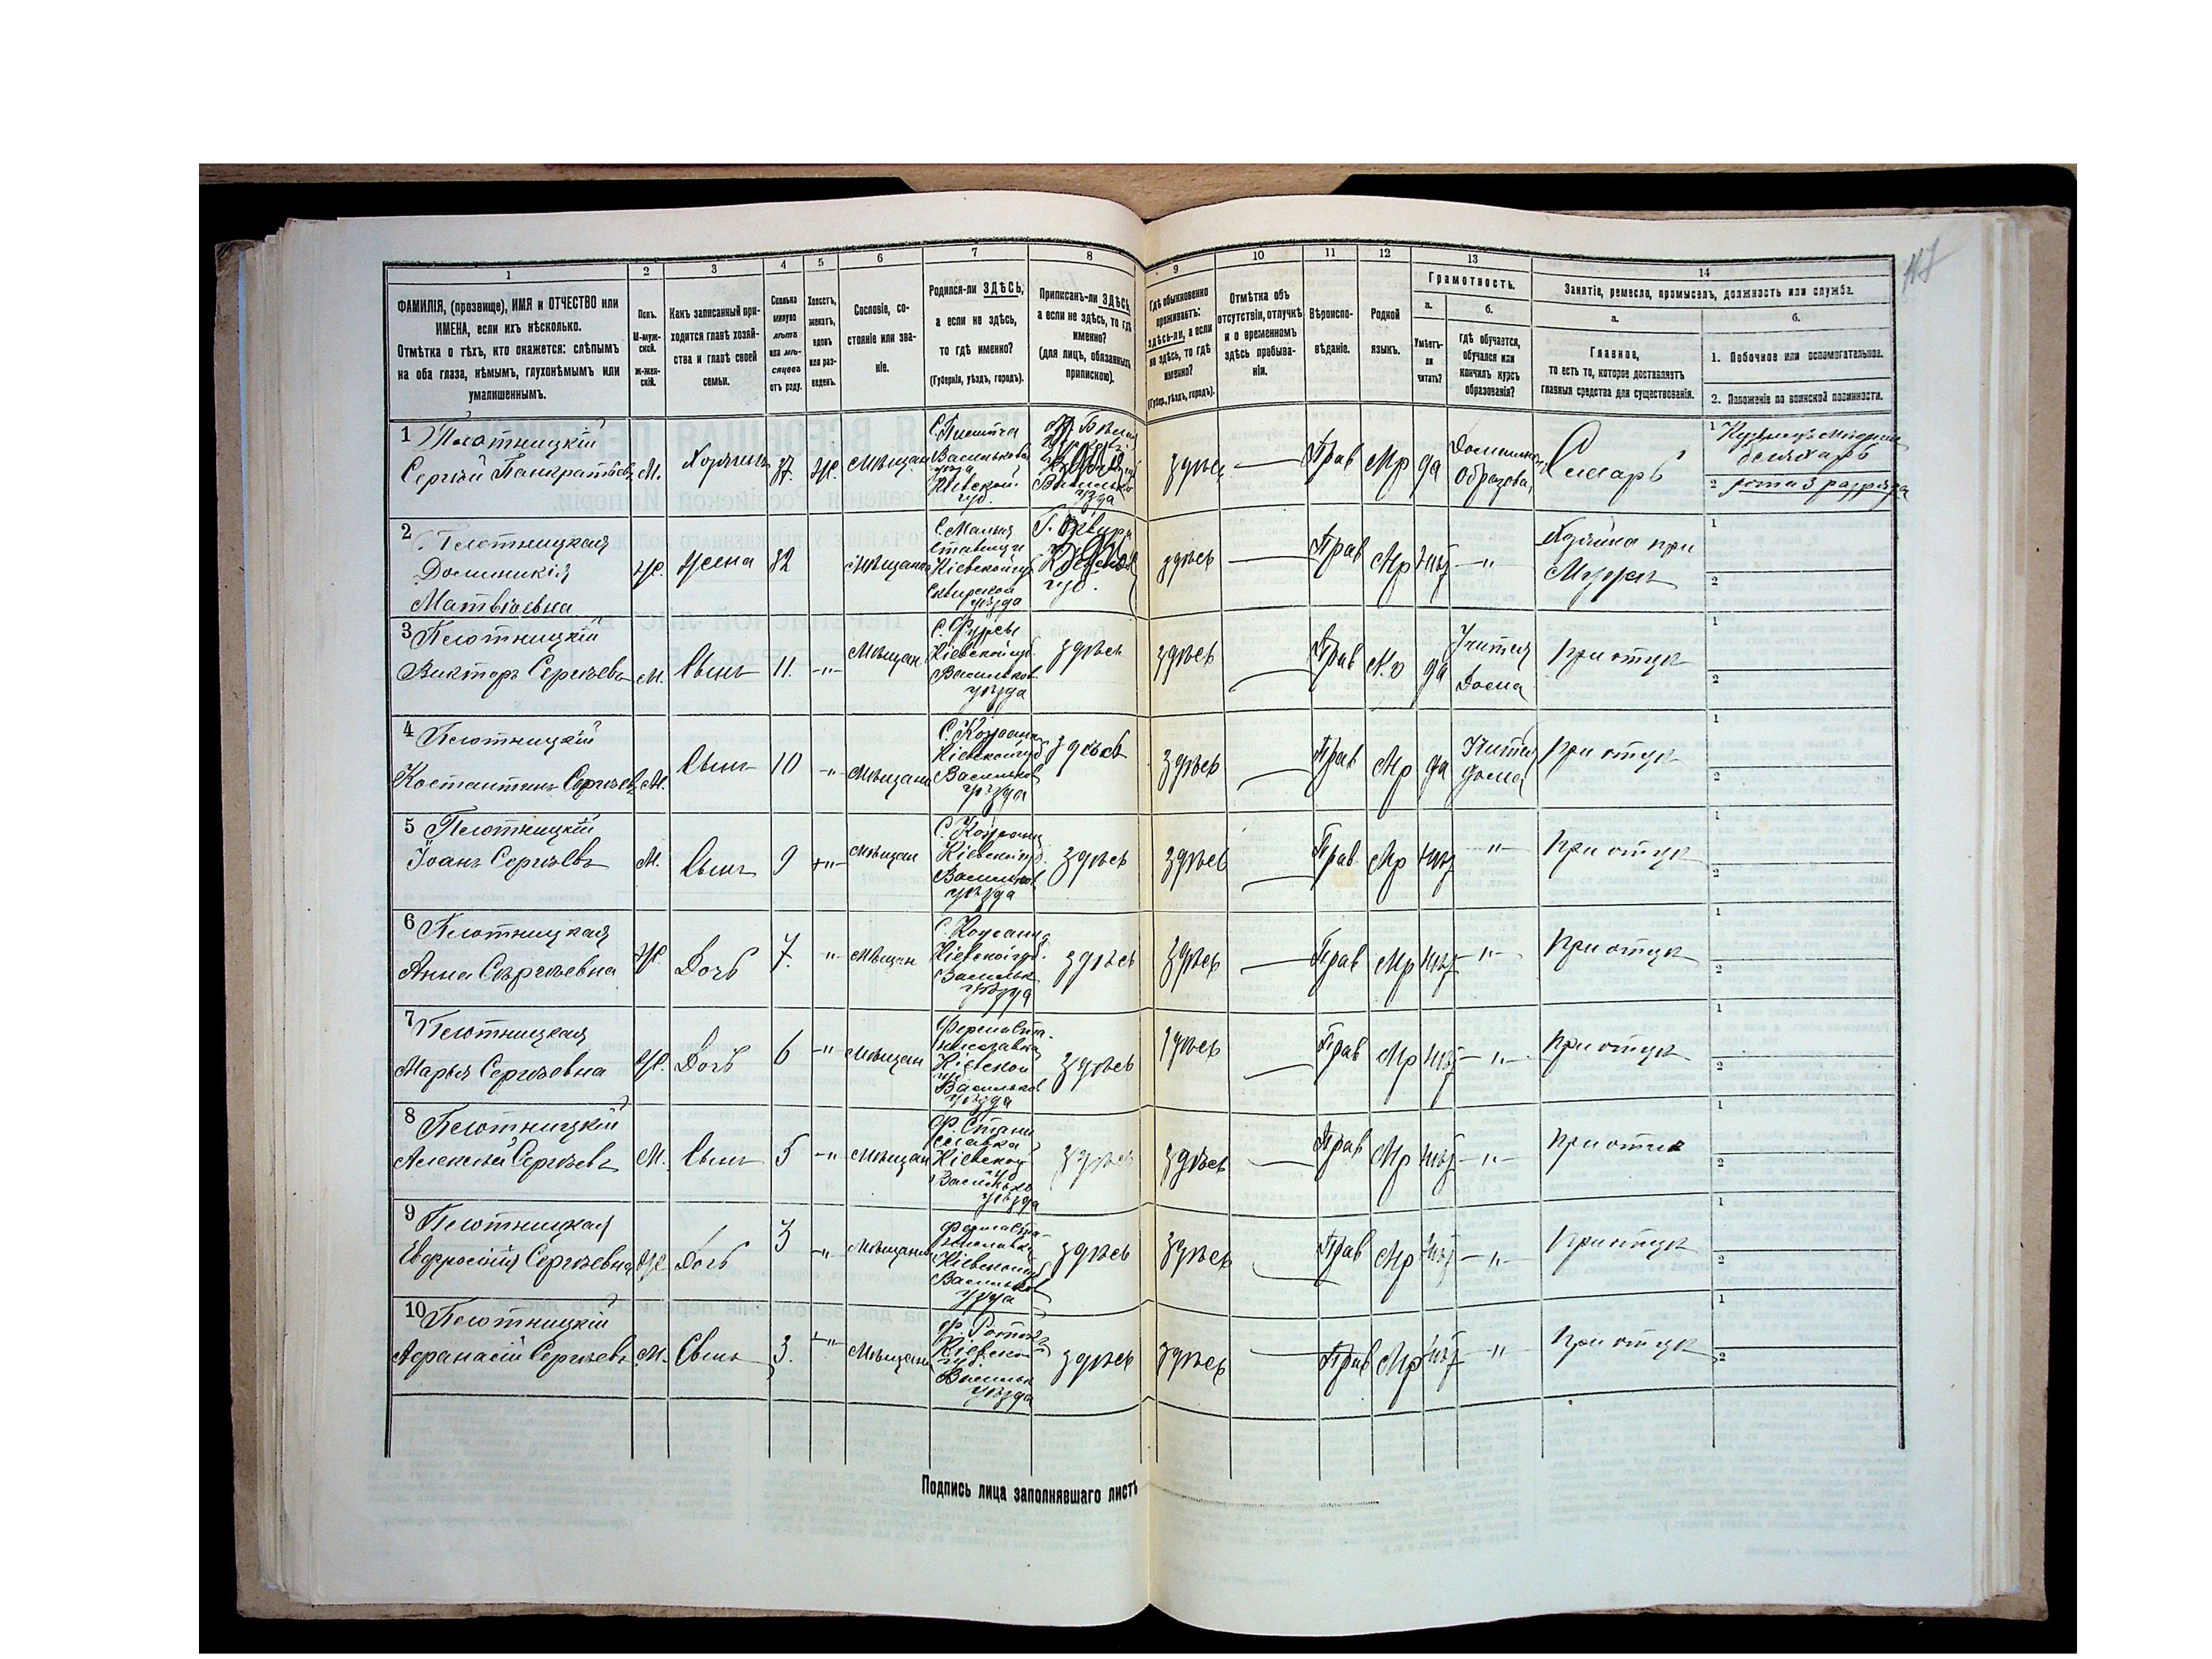 117
1 2 3 4 5 6 7 8 9 10 11 12 13 14
ФАМИЛІЯ, (прозвище), ИМЯ и ОТЧЕСТВО или
ИМЕНА, если ихъ нѣсколько.
Отмѣтка о тѣхъ, кто окажется: слѣпымъ
на оба глаза, нѣмымъ, глухонѣмымъ или
умалишеннымъ.
Полъ.
М-муж-
ской.
ж-жен-
скій.
Какъ записанный при-
ходится главѣ хозяй-
ства и главѣ своей
семьи.
Сколько
минуло
лѣтъ
или мѣ-
сяцевъ
отъ роду.
Холостъ,
женатъ,
вдовъ
или раз-
веденъ.
Сословіе, со-
стояніе или зва-
ніе.
Родился-ли ЗДѢСЬ,
а если не здѣсь,
то гдѣ именно?
(Губернія, уѣздъ, городъ).
Приписанъ-ли ЗДѢСЬ,
а если не здѣсь, то гдѣ
именно?
(для лицъ, обязанныхъ
припискою).
Гдѣ обыкновенно
проживаетъ:
здѣсь-ли, а если
не здѣсь, то гдѣ
именно?
(Губер., уѣздъ, городъ).
Отмѣтка объ
отсутствіи, отлучкѣ
и о временномъ
здѣсь пребыва-
ніи.
Вѣроиспо-
вѣданіе.
Родной
языкъ.
Грамотность.
а.
Умѣетъ-
ли
читать?
б.
Гдѣ обучается,
обучался или
кончилъ курсъ
образованія?
Занятіе, ремесло, промыселъ, должность или служба.
а.
Главное,
то есть то, которое доставляетъ
главныя средства для существованія.
б.
1. Побочное или вспомогательное.
2. Положеніе по воинской повинности.
1 Плотницкій
Сергѣй Панкратьевъ
М.
Хозяинъ
37.
Ж.
Мѣщан
Васильков
уѣзда
Кіевской
губ.
здѣсь
Прав
Мр
да
Домашнее
Образова,
Слѣсарь
1
2
2 Плотницкая
Доминикія
Матвѣевна
Ж.
Жена
32
Мѣщанка
С. Малыя
Ставищи
Кіевской губ
Сквирской
уѣзда
здѣсь
Прав
Мр
нѣт
"
Хозяйка при
Мужѣ
1
2
3 Плотницкій
Викторъ Сергѣевъ
М.
Сынъ
11.
"
Мѣщан.
С. Фурсы
Кіевской губ.
Васильков
уѣзда
здѣсь
здѣсь
Прав
да
Учится
Дома
при отцѣ
1
2
4 Плотницкій
Костантинъ Сергѣевъ
М.
Сынъ
10
"
Мѣщанин
С. Кожанка
Кіевской губ
Васильков
уѣзда
здѣсь
здѣсь
Прав
Мр
да
Учится
дома
при отцѣ
1
2
5 Плотницкій
Іоанъ Сергѣевъ
М.
Сынъ
9
"
Мѣщан
С. Кожанка
Кіевской губ.
Васильков
уѣзда
здѣсь
здѣсь
Прав
Мр
нѣт
"
при отцѣ
1
2
6 Плотницкая
Анна Сергѣевна
Ж.
Дочь
7.
"
Мѣщан
С. Кожанка
Кіевской губ.
Васильк
уѣзда
здѣсь
здѣсь
Прав
Мр
нѣт
"
при отцѣ
1
2
7 Плотницкая
Марья Сергѣевна
Ж.
Дочь
6
"
Мѣщан
Ферма Ста-
ниславка
Кіевской
губ
Васильков
уѣзда
здѣсь
здѣсь
Прав
Мр
нѣт
"
при отцѣ
1
2
8 Плотницкій
Алексѣй Сергѣевъ
М.
Сынъ
5
"
Мѣщан
Ф. Стани
славка
Кіевской
губ
Васильков
уѣзда
здѣсь
здѣсь
Прав
Мр
нѣт
"
при отцѣ
1
2
9 Плотницкая
Евфросинія Сергѣевна
Ж
Дочь
3
"
Мѣщанин
Ферма Ста-
ниславка
Кіевской губ
Васильков
узда
здѣсь
здѣсь
Прав
Мр
нѣт
"
при отцѣ
1
2
10 Плотницкій
Афанасій Сергѣевъ
М.
Сынъ
3.
"
Мѣщанин
Кіевской
губ.
Васильк
уѣзда
здѣсь
здѣсь
Прав
Мр
нѣт
"
при отцѣ
1
2
Подпись лица заполнявшаго листъ